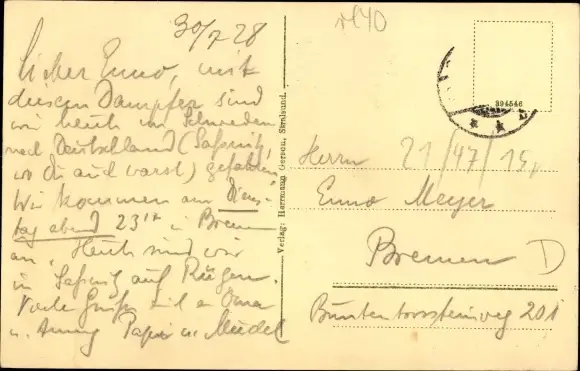 30/7 28
Lieber Enno, mit
diesem Dampfer sind
wir heute von Schweden
nach Deutschland (Saßnitz,
wo Du auch warst) gefahren.
Wir kommen am Diens-
tag abend 23 17 in Bremen
an. Heute sind wir
in Saßnitz auf Rügen.
Viele Grüße Oma
u. Papa u. Mudel
Verlag: Herrmann Gerson, Stralsund.
394546
21/47/15
Herrn
Enno Meyer
Bremen D
Buntentorsteinweg 201